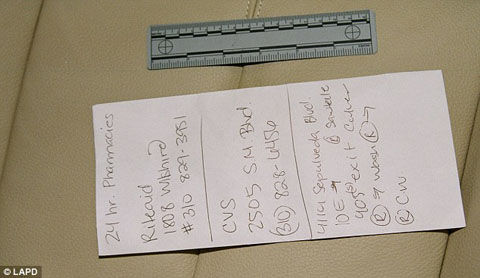 24 hr. Pharmacies
Riteaid
1808 Wilshire
# 310 829-3951
CVS
2505 SM Blvd.
(310) 828-6456
4114 Sepulveda Blvd.
10 E Sawtelle
405 exit Culver
R R
R
© LAPD